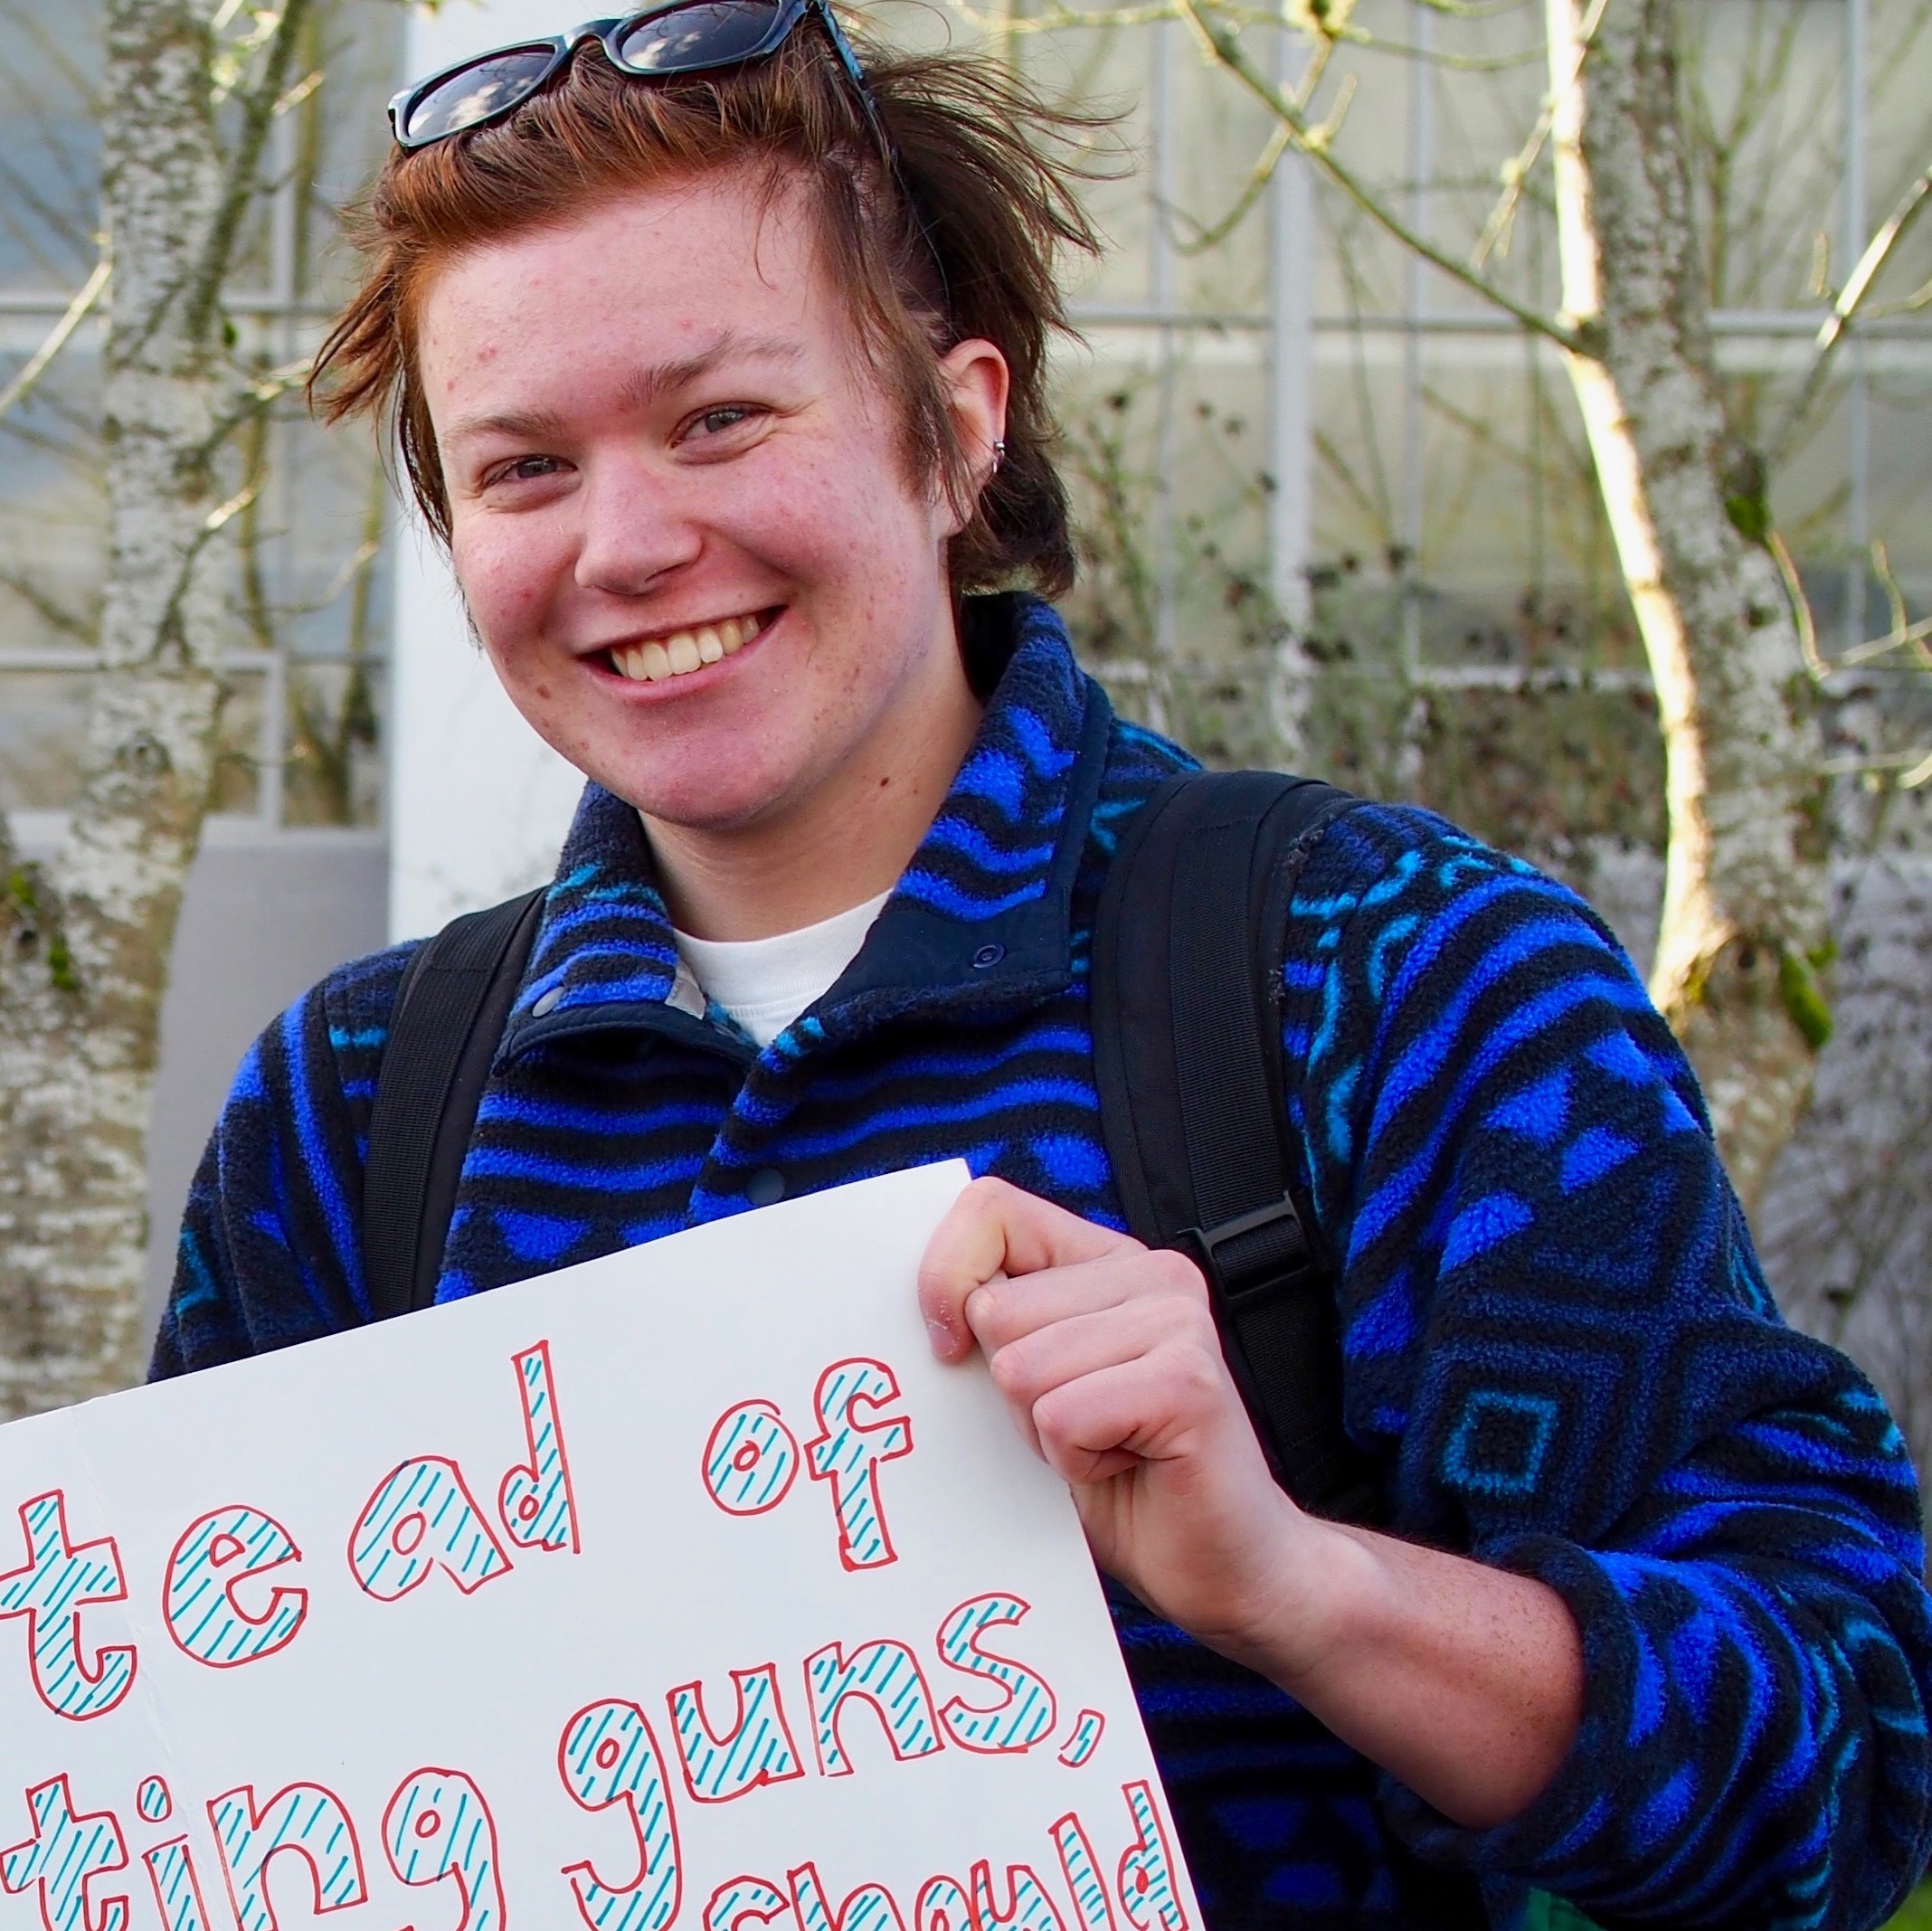 tead of
ting guns,
should